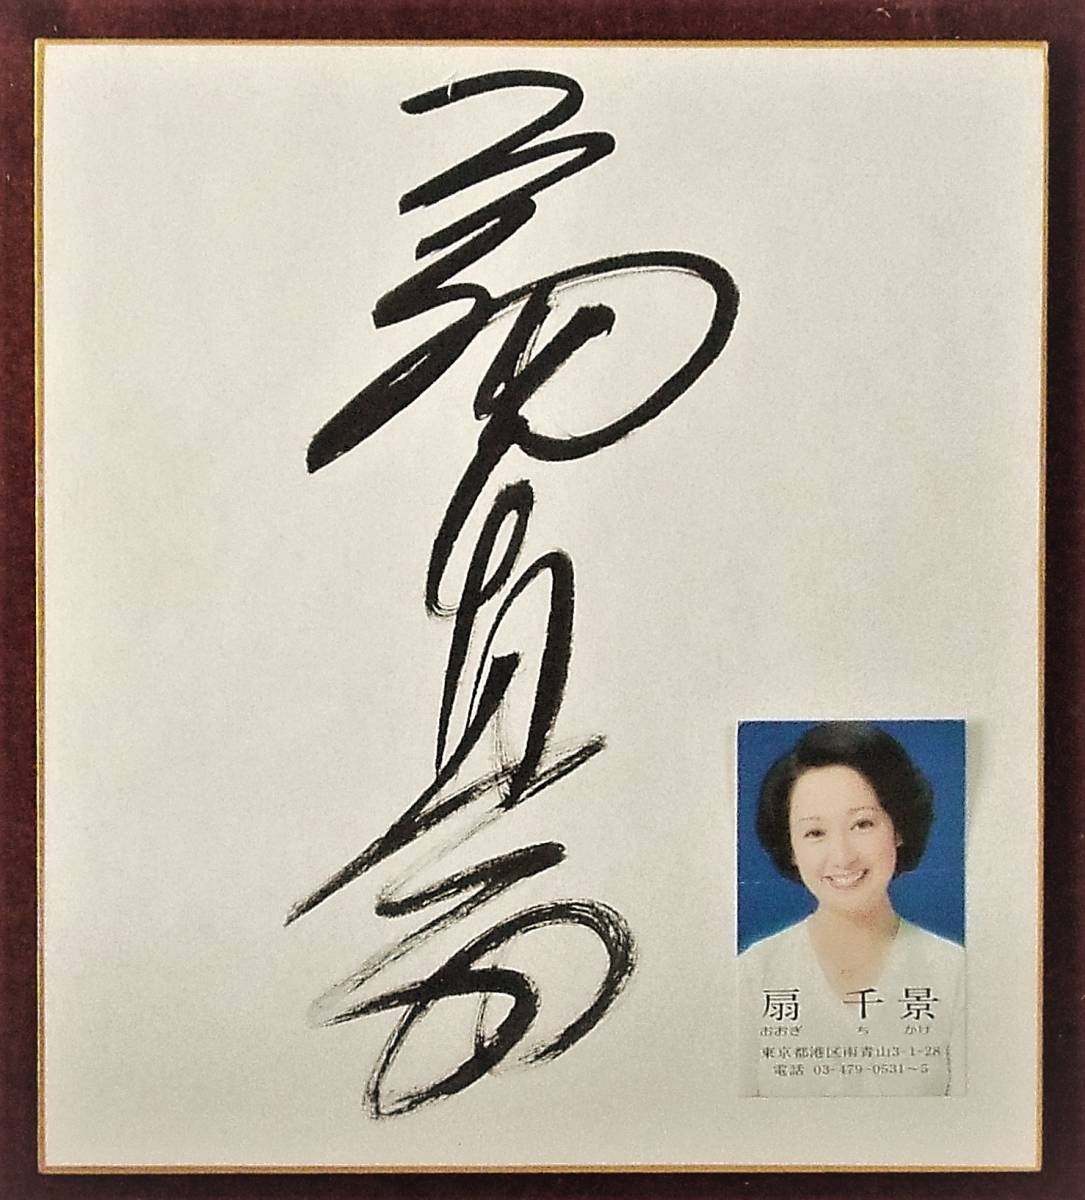 扇千景
扇 千景
おおぎ ち かげ
東京都港区南青山3-1-28
電話 03-479-0531~5